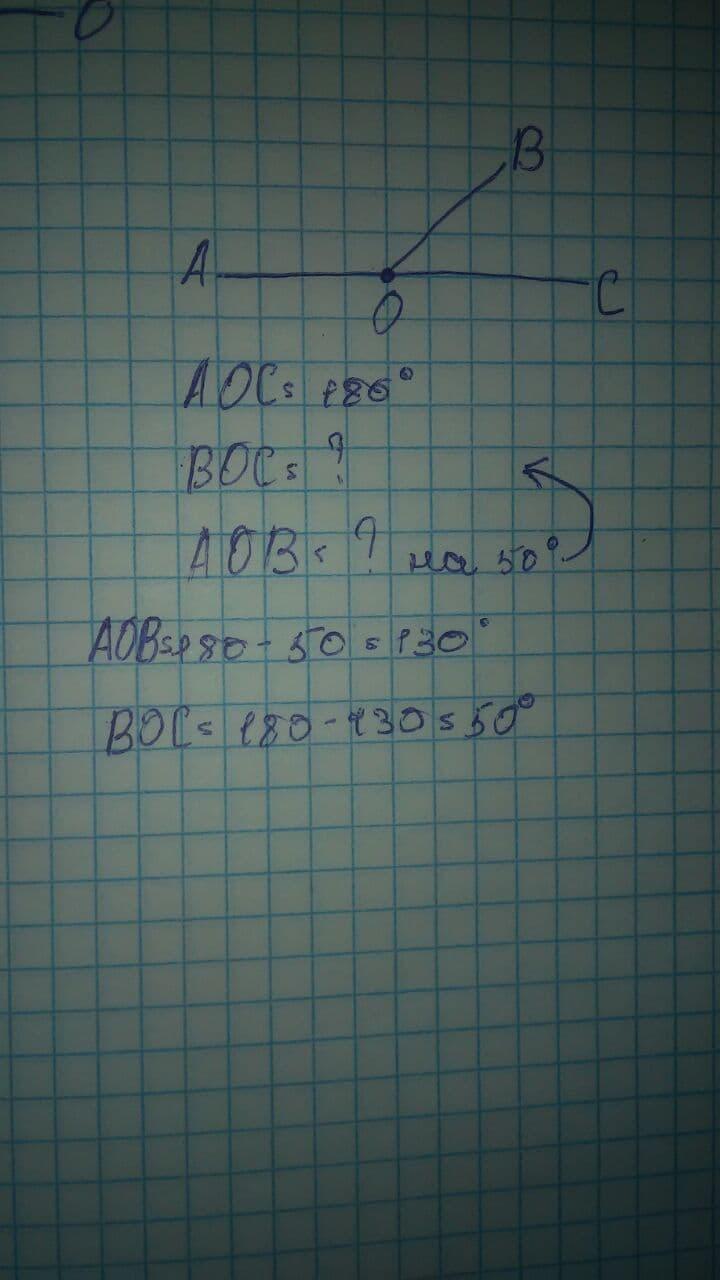 O
B
A
O
C
AOC = 180°
BOC = ?
AOB = ? на 50°
AOB = 180 - 50 = 130°
BOC = 180 - 130 = 50°